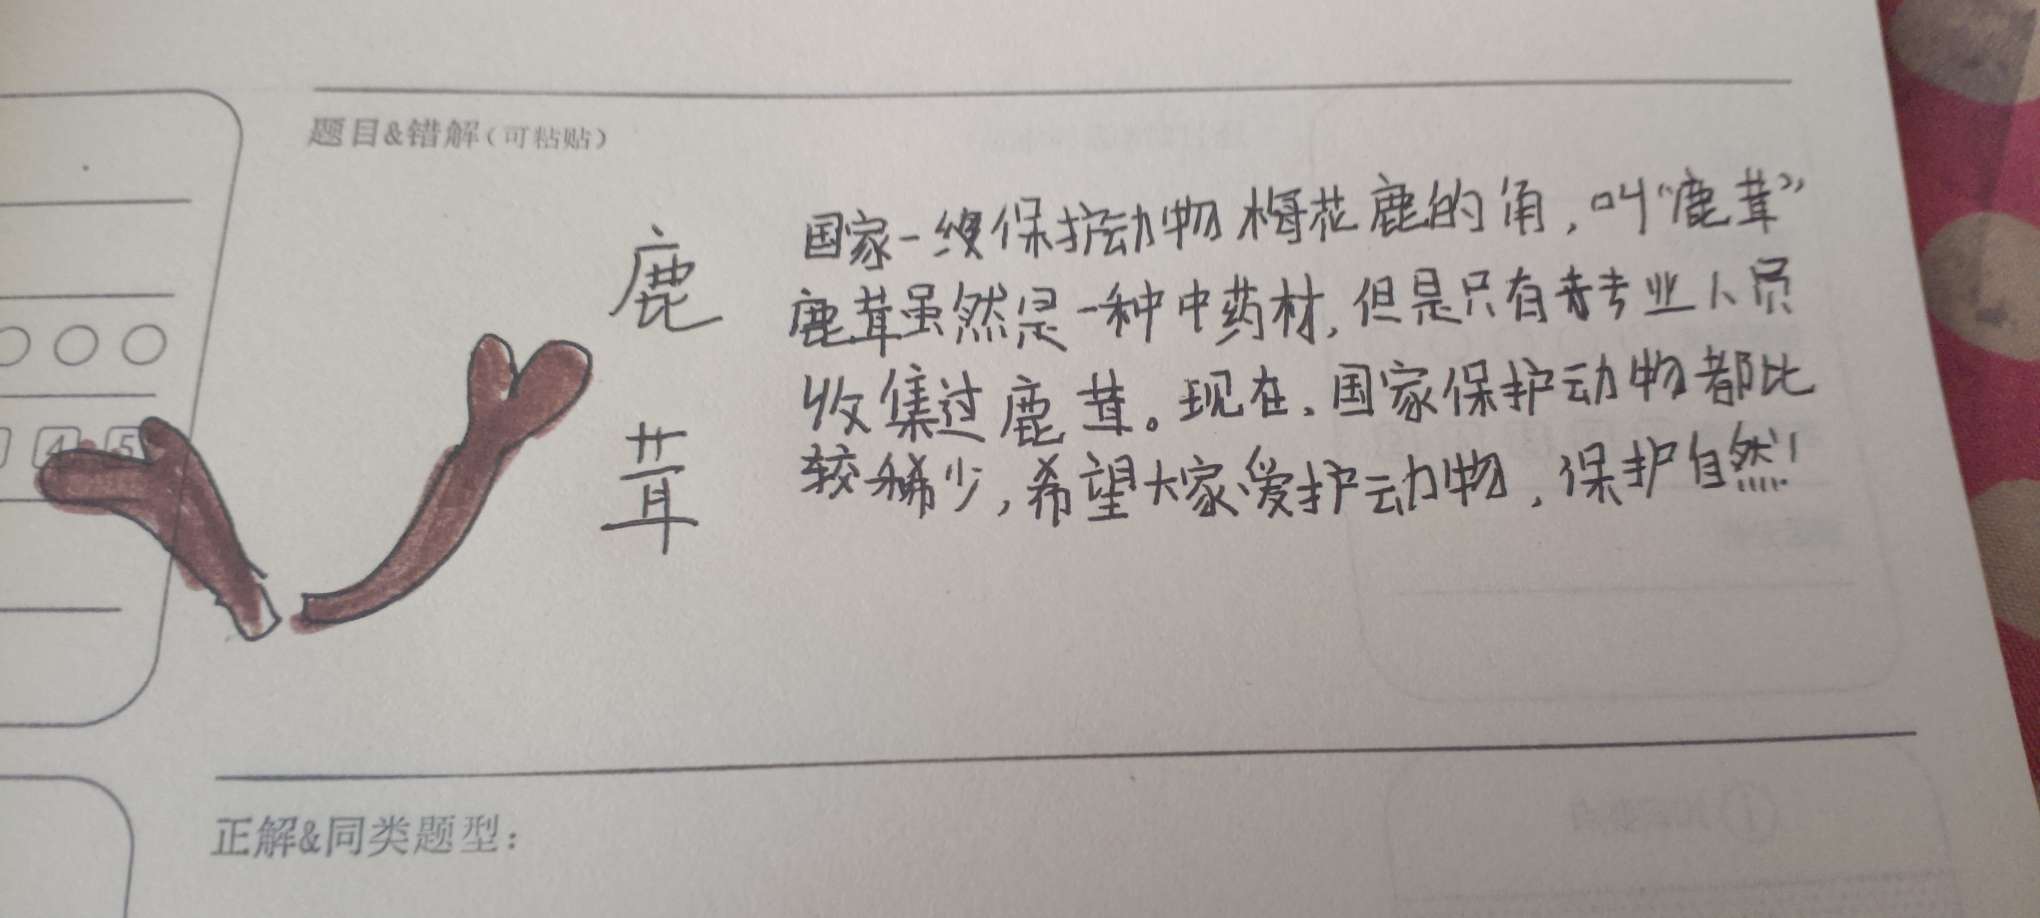 题目&错解(可粘贴)
鹿茸
国家一级保护动物梅花鹿的角,叫“鹿茸”
鹿茸虽然是一种中药材,但是只有专业人员
收集过鹿茸。现在,国家保护动物都比
较稀少,希望大家爱护动物,保护自然!
4 5
正解&同类题型: